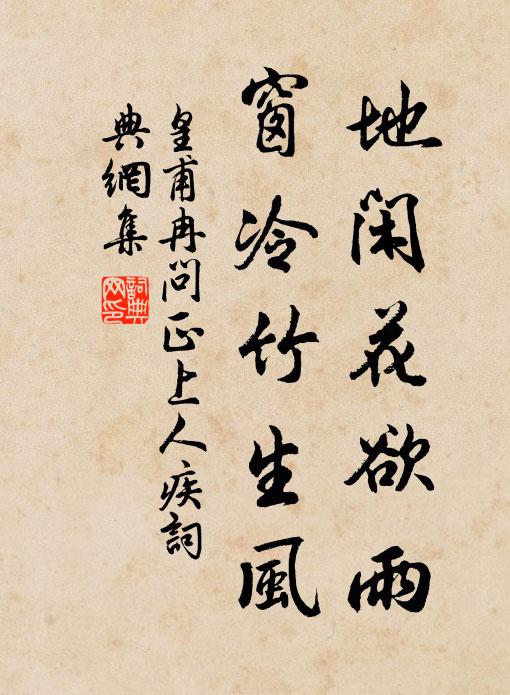 地閑花欲雨
窗冷竹生風
皇甫冉問正上人疾詞
典網集
詞典網印